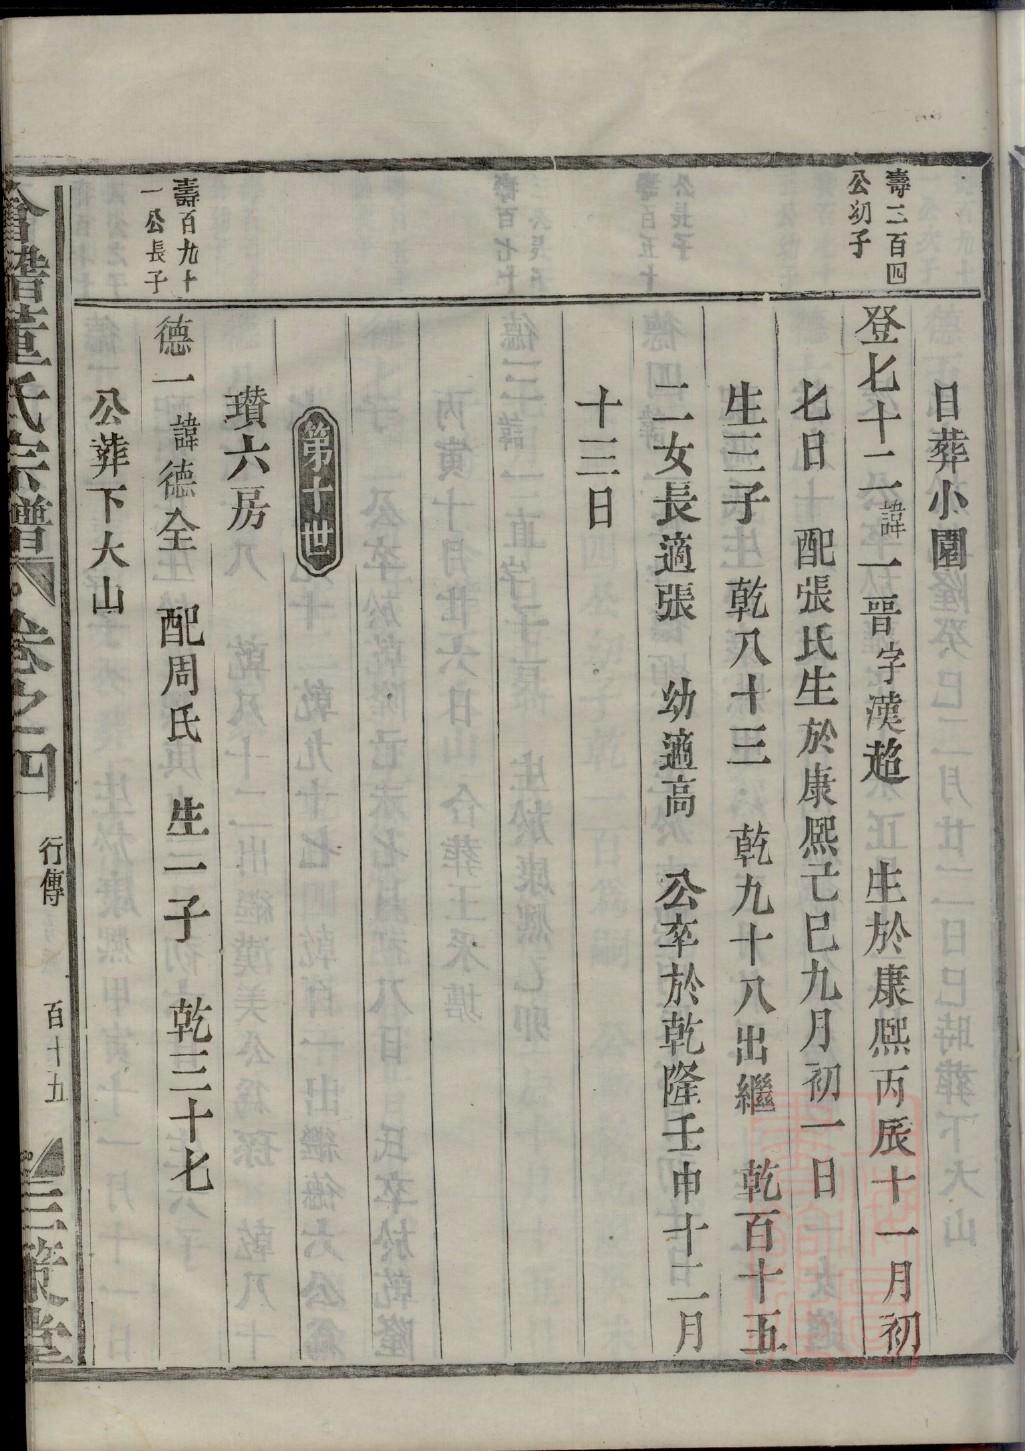 日葬小園
壽二百四
公幼子
登七十二諱一晋字漢超　生於康熙丙辰十一月初
七日　配張氏生於康熙己巳九月初一日
生三子　乾八十三　乾九十八出繼　乾百十五
二女長適張　幼適高　公卒於乾隆壬申十二月
十三日
第十世
瓚六房
壽百九十
一公長子
德一諱德全　配周氏　生一子　乾三十七
公葬下大山
會譜董氏宗譜
卷之四
行傳
百十五
三策堂